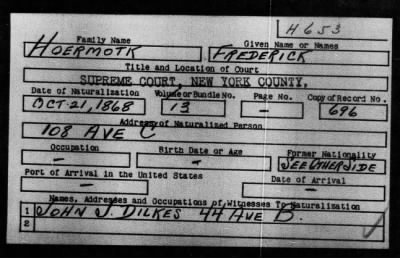 H653
Family Name Given Name or Names
HOERMOTK FREDERICK
Title and Location of Court
SUPREME COURT, NEW YORK COUNTY,
Date of Naturalization Volume or Bundle No. Page No. Copy of Record No.
OCT. 21, 1868 13 — 696
Address of Naturalized Person
108 AVE C
Occupation Birth Date or Age Former Nationality
— — SEE OTHER SIDE
Port of Arrival in the United States Date of Arrival
— —
Names, Addresses and Occupations of Witnesses To Naturalization
1 JOHN J. DILKES 44 AVE B.
2